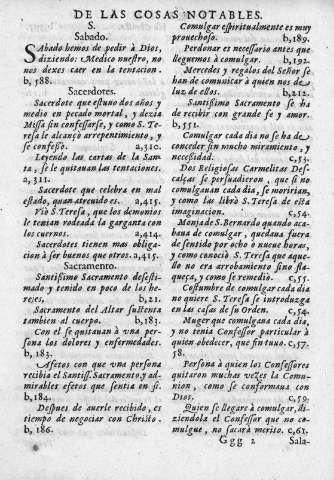 DE LAS COSAS NOTABLES.
S.
Sabado.
Sabado hemos de pedir à Dios,
diziendo: Medico nuestro, no
nos dexes caer en la tentacion.
b, 588.
Sacerdotes.
Sacerdote que estuvo dos años y
medio en pecado mortal, y dezia
Missa sin confessarse, y como S. Te-
resa le alcançò arrepentimiento, y
se confessò. a,310.
Leyendo las cartas de la San-
ta, se le quitauan las tentaciones.
a, 311.
Sacerdote que celebra en mal
estado, quan atreuido es. a,415.
Viò S. Teresa, que los demonios
le tenian rodeada la garganta con
los cuernos. a,414.
Sacerdotes tienen mas obliga-
cion à ser buenos que otros. a,415.
Sacramento.
Santissimo Sacramento desesti-
mado y tenido en poco de los he-
rejes, b,21.
Sacramento del Altar sustenta
tambien al cuerpo. b,183.
Con el se quitauan à vna per-
sona los dolores y enfermedades.
b, 183.
Afetos con que vna persona
recibia el Santiss. Sacramento, y ad-
mirables efetos que sentia en si.
b, 184.
Despues de auerle recibido, es
tiempo de negociar con Christo.
b, 186.
Comulgar espiritualmente es muy
prouechoso. b,189.
Perdonar es necessario antes que
lleguemos à comulgar. b,192.
Mercedes y regalos del Señor se
han de comunicar à quien nos de
luz de ellos. b,212.
Santissimo Sacramento se ha
de recibir con grande fe y amor.
b, 551.
Comulgar cada dia no se ha de
conceder sin mucho miramiento, y
necessidad. c,53.
Dos Religiosas Carmelitas Des-
calças se persuadieron, que si no
comulgauan cada dia, se moririan,
y como las librò S. Teresa de esta
imaginacion. c,54.
Monja de S. Bernardo quando aca-
baua de comulgar, quedaua fuera
de sentido por ocho ò nueue horas,
y como conociò S. Teresa que aque-
llo no era arrobamiento sino fla-
queza, y como se remediò. c,55.
Costumbre de comulgar cada dia
no quiere S. Teresa se introduzga
en las casas de su Orden. c,54.
Muger que comulgaua cada dia,
y no tenia Confessor particular à
quien obedecer, que fin tuuo. c,57.
58.
Persona à quien los Confessores
quitaron muchas vezes la Comu-
nion, como se conformaua con
Dios. c,59.
Quien se llegare à comulgar, di-
ziendola el Confessor que no co-
mulgue, no sacarà merito. c,61.
Ggg 2 Sala-